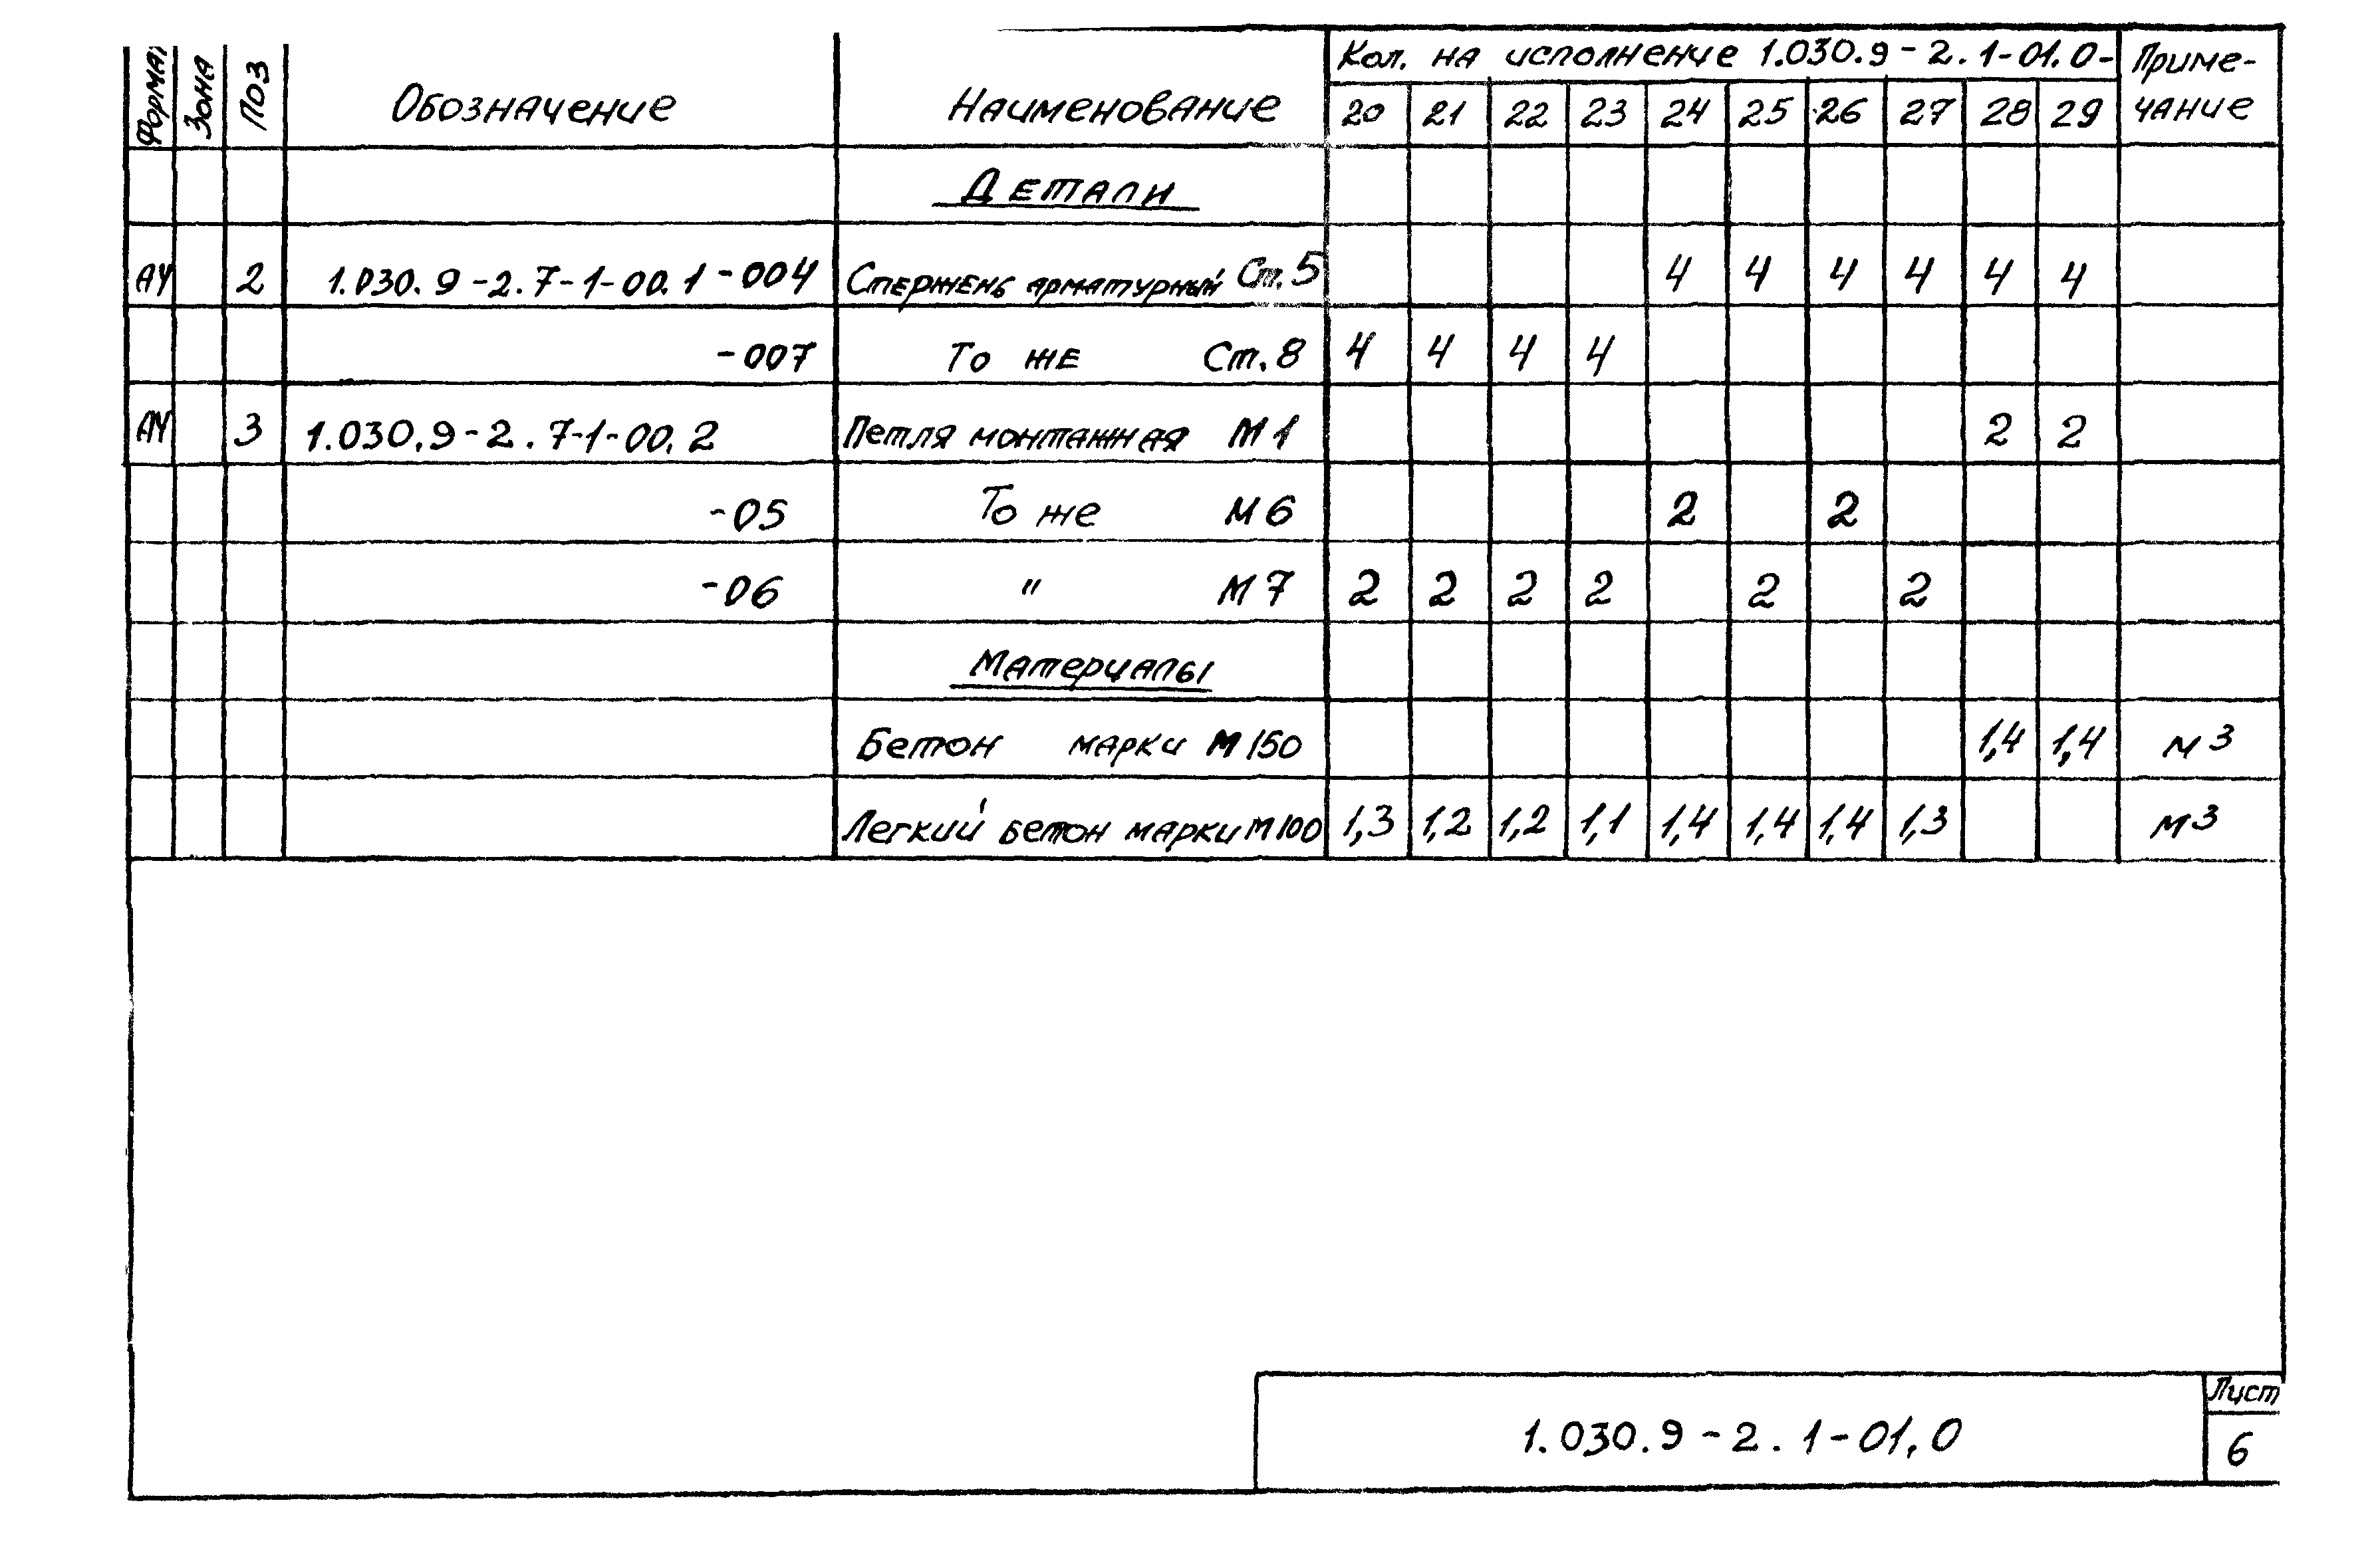 Формат Зона Поз Обозначение Наименование Кол. на исполнение 1.030.9-2.1-01.0- Приме-
20 21 22 23 24 25 26 27 28 29 чание
Детали
А4 2 1.030.9-2.7-1-00.1-004 Стержень арматурный Ст.5 4 4 4 4 4 4
-007 То же Ст.8 4 4 4 4
А4 3 1.030.9-2.7-1-00.2 Петля монтажная М1 2 2
-05 То же М6 2 2
-06 " М7 2 2 2 2 2 2
Материалы
Бетон марки М150 1,4 1,4 м3
Легкий бетон марки М100 1,3 1,2 1,2 1,1 1,4 1,4 1,4 1,3 м3
Лист
1.030.9-2.1-01.0
6